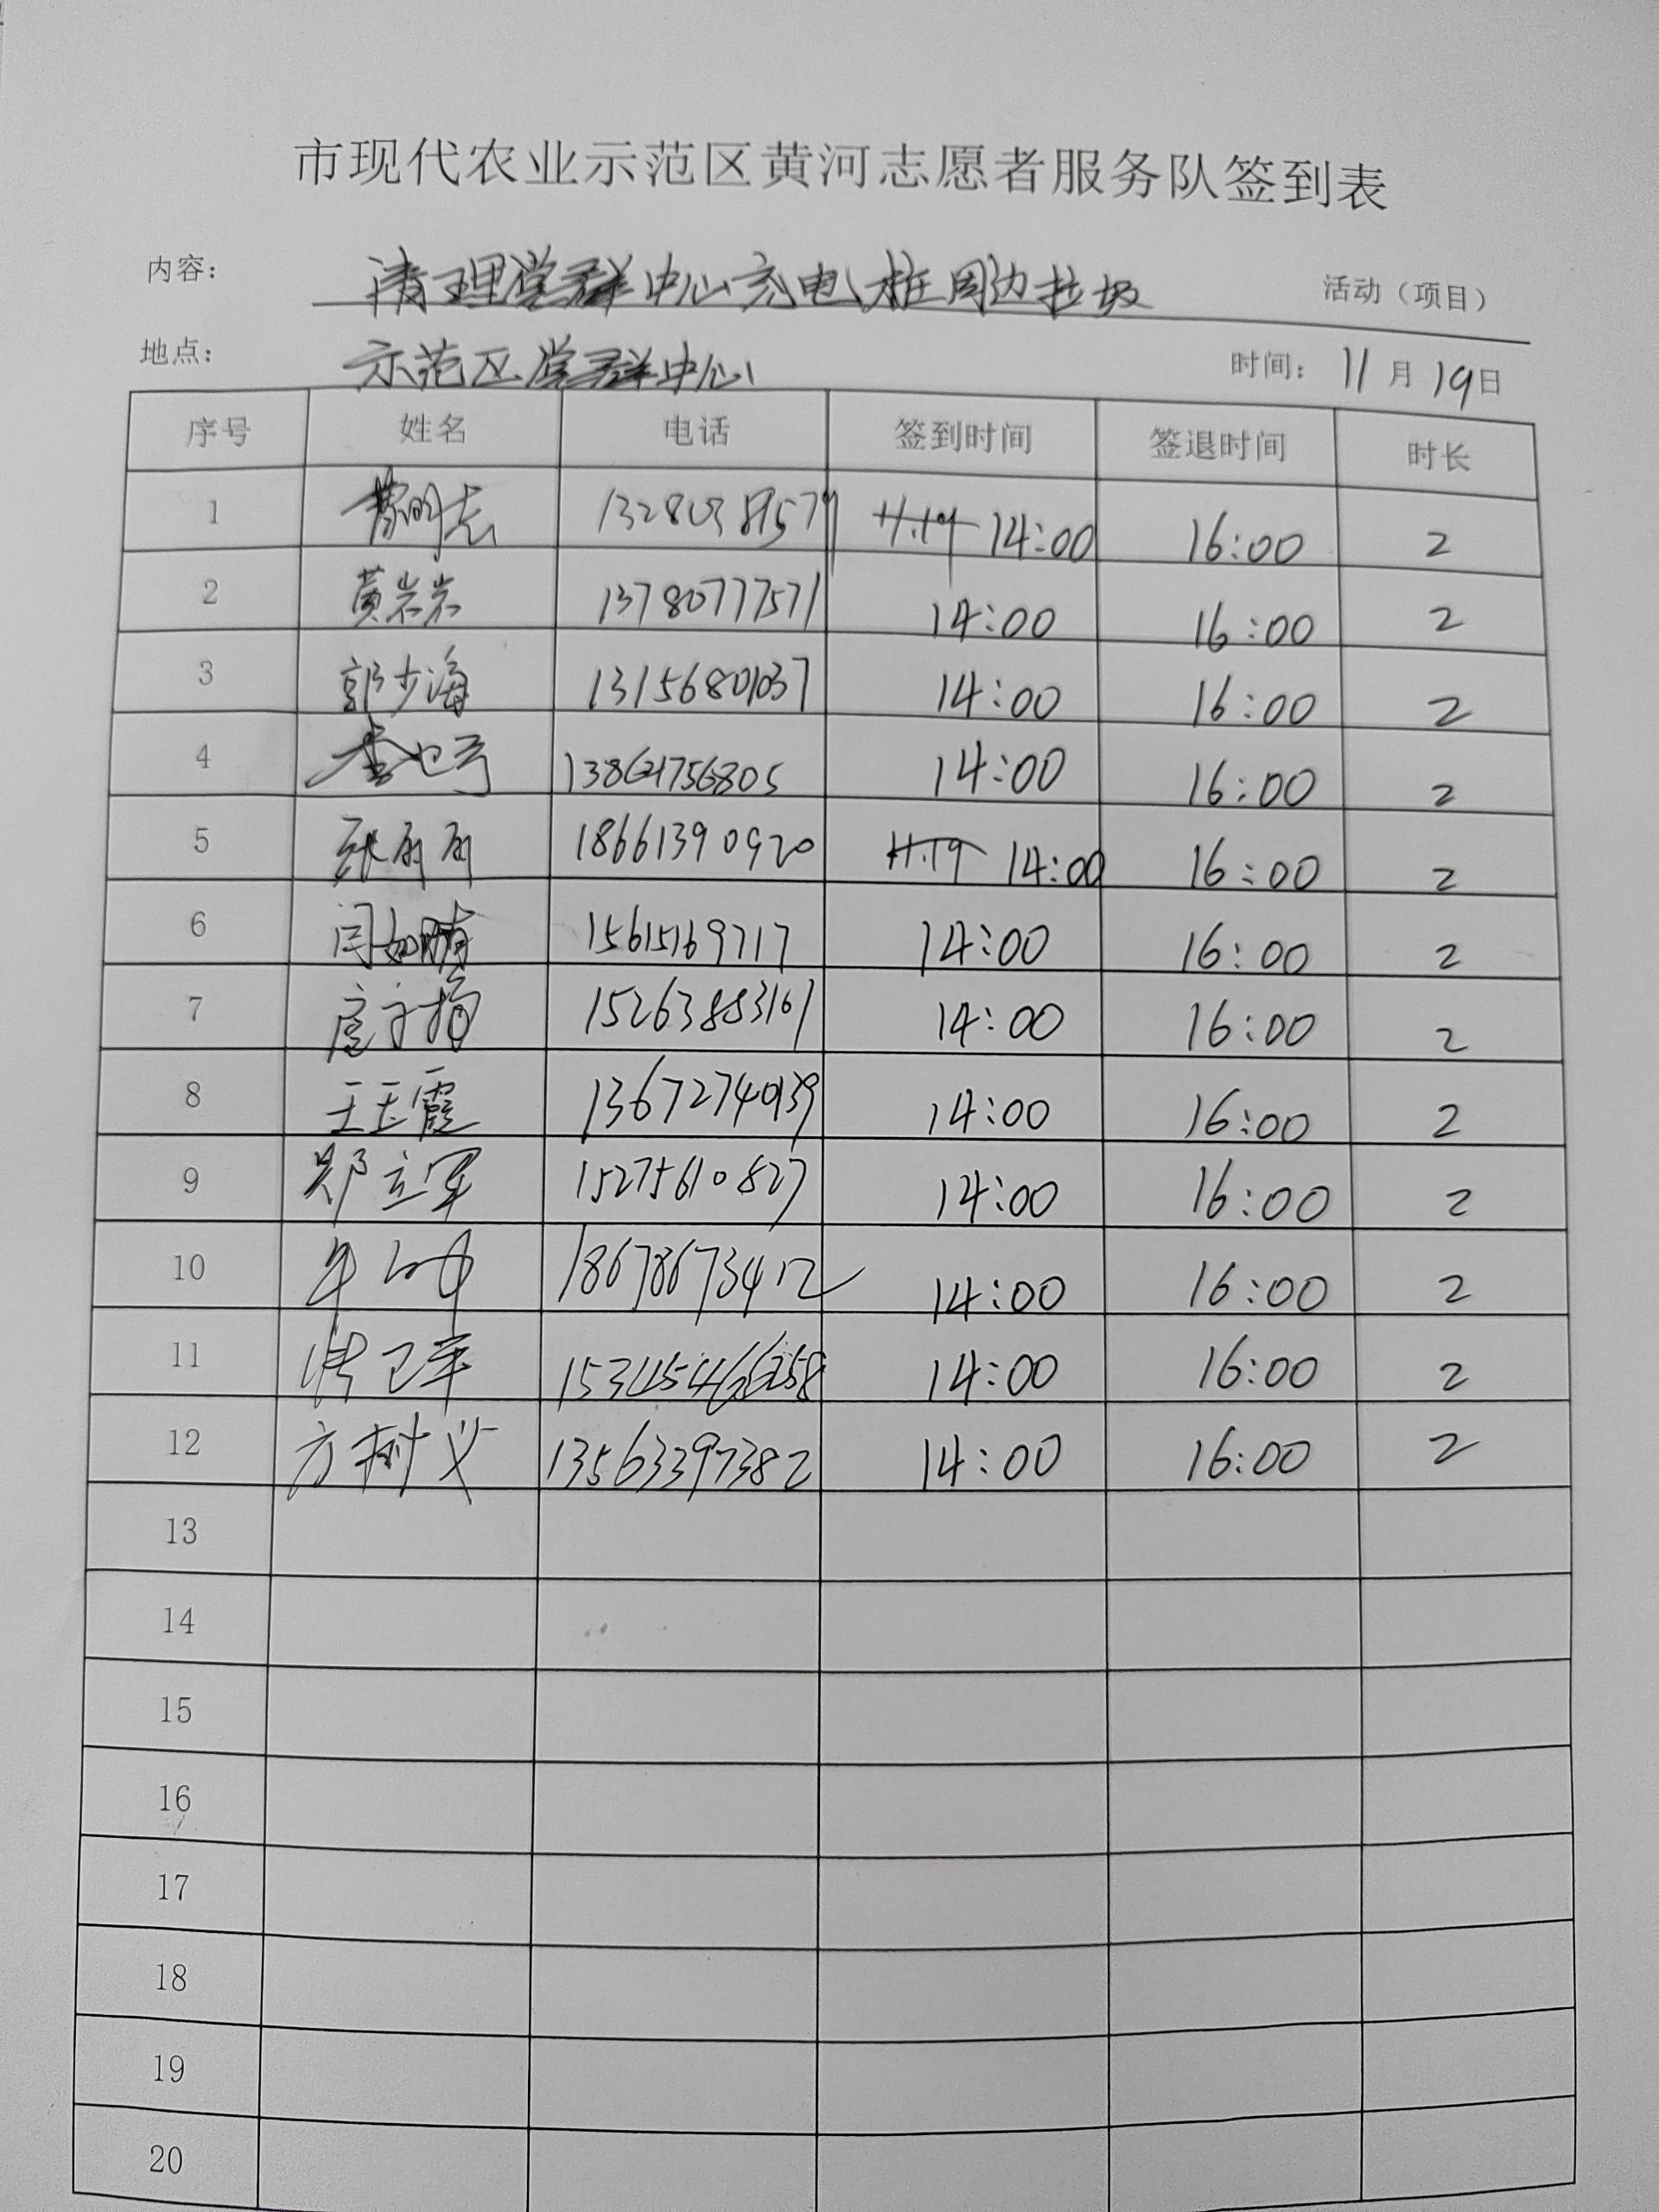 市现代农业示范区黄河志愿者服务队签到表
内容： 清理党群中心充电桩周边垃圾 活动（项目）
地点： 示范区党群中心 时间： 11月19日
序号 姓名 电话 签到时间 签退时间 时长
1 14:00 16:00 2
2 黄岩岩 13780777571 14:00 16:00 2
3 郭少海 13156801037 14:00 16:00 2
4 14:00 16:00 2
5 张丽丽 18661390920 14:00 16:00 2
6 闫如晴 15615169717 14:00 16:00 2
7 15263883161 14:00 16:00 2
8 王玉霞 13672740139 14:00 16:00 2
9 郑立军 15275610827 14:00 16:00 2
10 18678673412 14:00 16:00 2
11 14:00 16:00 2
12 方树义 13563397382 14:00 16:00 2
13
14
15
16
17
18
19
20